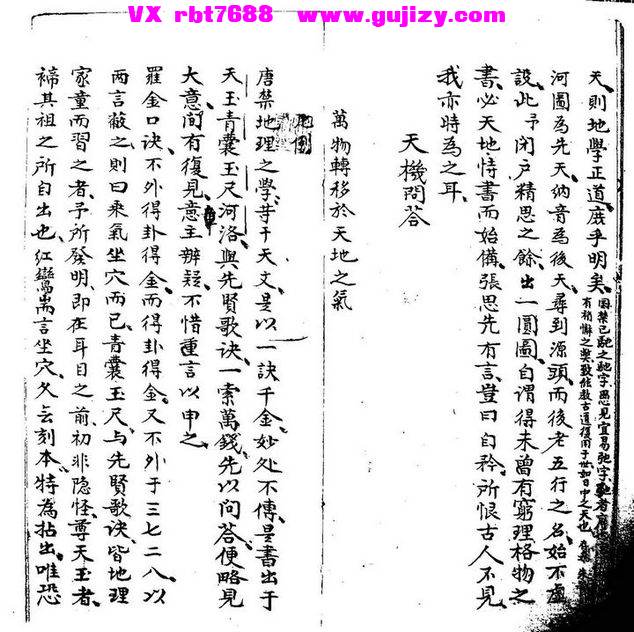 VX rbt7688 www.gujizy.com
天則地學正道庶乎明矣
河圖為先天納音為後天尋到源頭而後老五行之名始不虛
設此予閉戶精思之餘出一圓圖自謂得未曾有窮理格物之
書必天地恃書而始備張思先有言豈曰自矜所恨古人不見
我亦時為之耳
天機問答
萬物轉移於天地之氣
地僊
唐禁地理之學苛于天文是以一訣千金妙处不傳是書出于
天玉青囊玉尺河洛與先賢歌訣一索萬錢先以问答便略見
大意间有復見意主辨疑不惜重言以申之
羅金口诀不外得卦得金而得卦得金又不外于三七二八以
两言蔽之則曰乘氣坐穴而已青囊玉尺与先賢歌诀皆地理
家童而習之者予所發明即在耳目之前初非隐怪尊天玉者
禘其祖之所自出也紅鸞嵩言坐穴久去刻本特為拈出唯恐